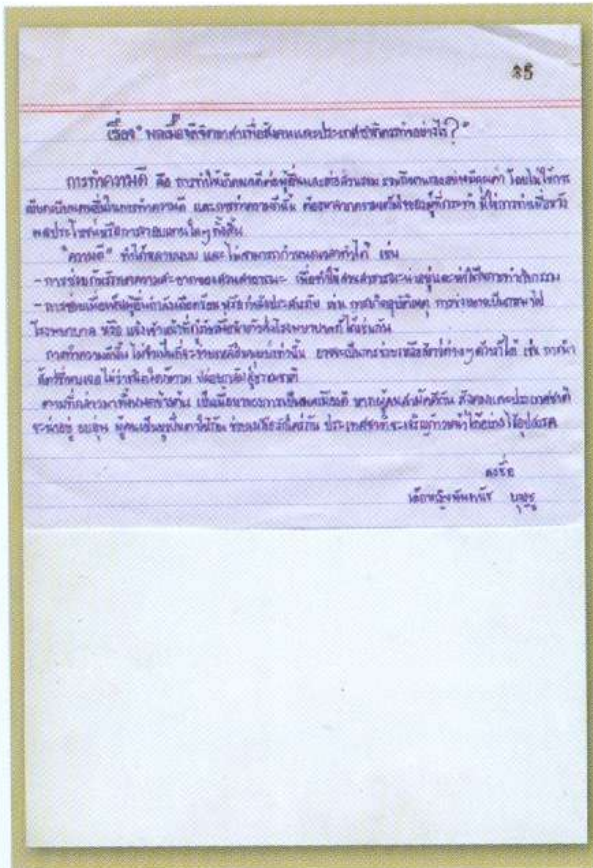 35
เรื่อง "พลเมืองดีจิตอาสาเพื่อสังคมและประเทศชาติควรทำอย่างไร?"
การทำความดี คือ การทำให้เกิดผลดีต่อผู้อื่นและต่อส่วนรวม รวมถึงตนเอง โดยไม่ใช้การ
เบียดเบียนคนอื่นในการทำความดี และการทำความดีนั้น ต้องมาจากความตั้งใจของผู้ที่กระทำ มิใช่การทำเพื่อหวัง
ผลประโยชน์หรือการตอบแทนใดๆ ทั้งสิ้น
"ความดี" ทำได้หลายแบบ และไม่สามารถกำหนดเวลาทำได้ เช่น
- การช่วยกันรักษาความสะอาดของส่วนสาธารณะ เพื่อทำให้ส่วนสาธารณะน่าอยู่และน่าใช้ในการทำกิจกรรม
- การช่วยเหลือผู้อื่นกำลังเดือดร้อน หรือ กำลังประสบภัย เช่น การเกิดอุบัติเหตุ การช่วย
โรงพยาบาล หรือ แจ้งเจ้าหน้าที่กู้ภัยเพื่อนำตัวส่งโรงพยาบาลก็ได้เช่นกัน
การทำความดีนั้น ไม่จำเป็นที่จะช่วยแค่มนุษย์เท่านั้น อาจจะเป็นการช่วยเหลือสัตว์ต่างๆ ด้วยก็ได้ เช่น การนำ
สัตว์ ปล่อยกลับสู่ธรรมชาติ
ตามที่กล่าวมาทั้งหมดข้างต้น เป็นเพียง ของการเป็นพลเมืองดี หากผู้คนสามัคคีกัน สังคมและประเทศชาติ
จะน่าอยู่ อบอุ่น ผู้คน ช่วยเหลือ กัน ประเทศชาติจะเจริญก้าวหน้าได้อย่างไร้อุปสรรค
ลงชื่อ
เด็กหญิง